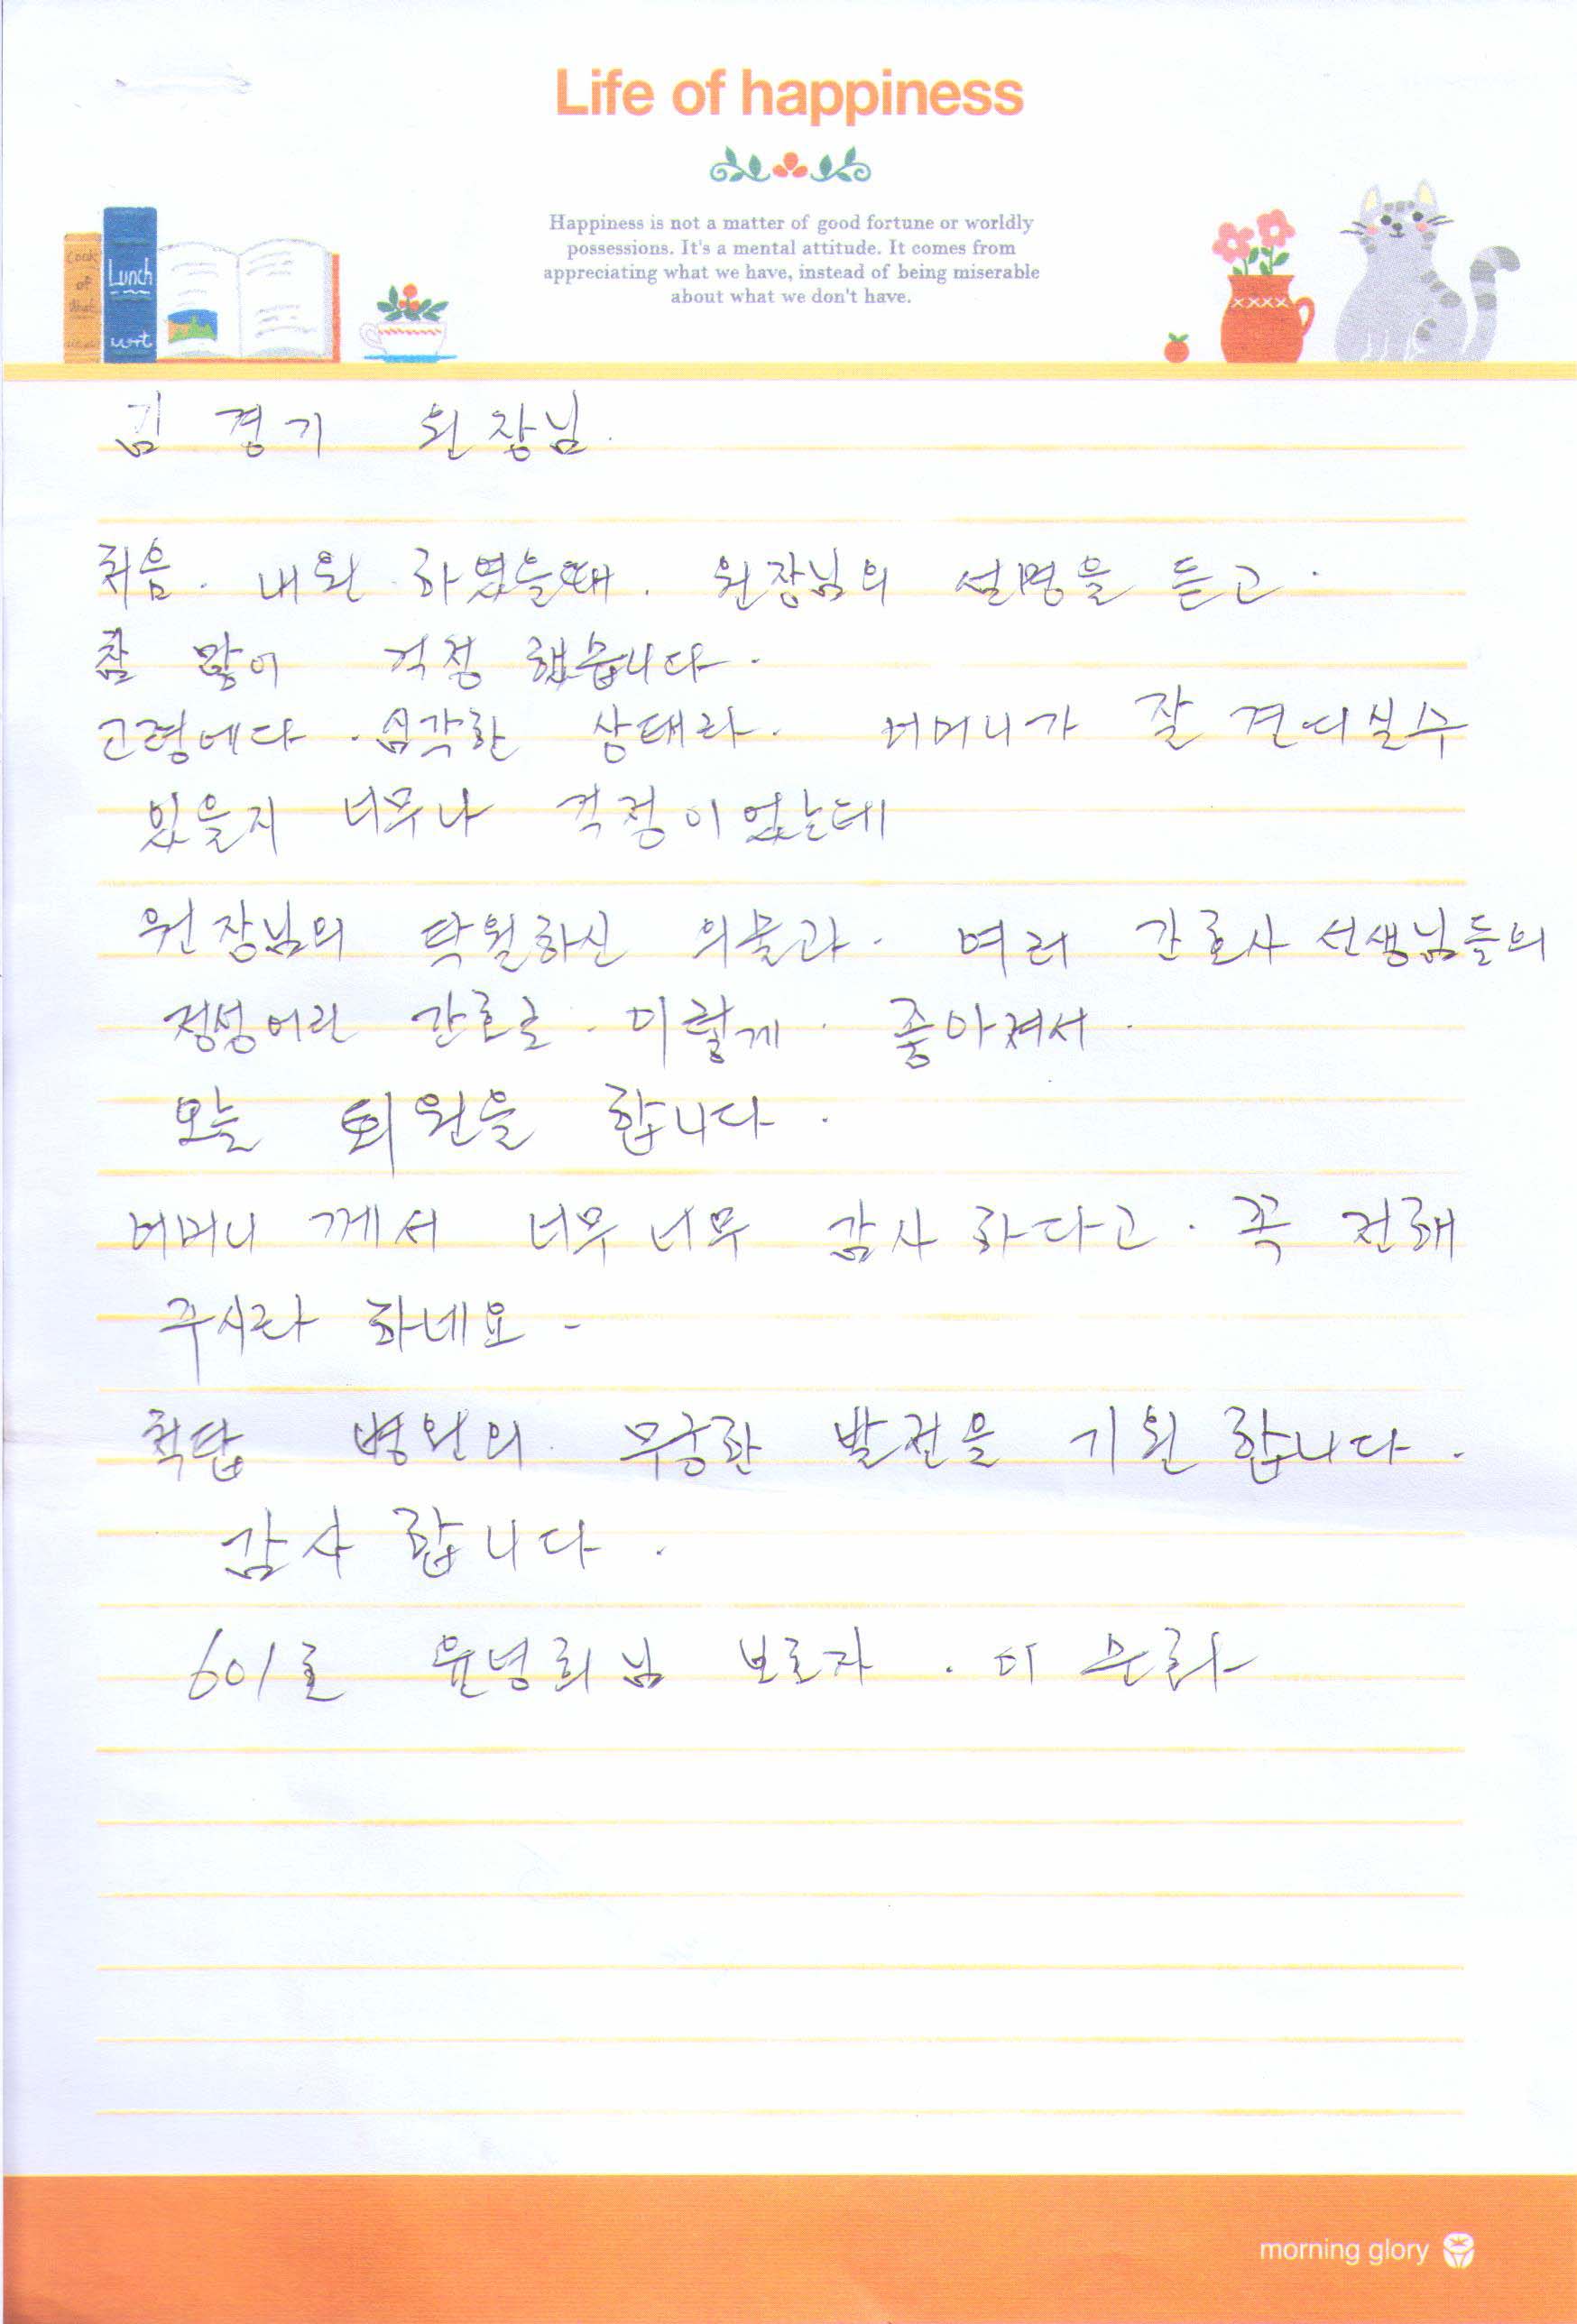 Life of happiness
Happiness is not a matter of good fortune or worldly
possessions. It's a mental attitude. It comes from
appreciating what we have, instead of being miserable
about what we don't have.
Cook
of
Lunch
김 경기 원장님.
처음. 내원 하였을때. 원장님의 설명을 듣고.
참 많이 걱정 했습니다.
고령에다. 심각한 상태라. 어머니가 잘 견디실수
있을지 너무나 걱정이었는데
원장님의 탁월하신 의술과. 여러 간호사 선생님들의
정성어린 간호로. 이렇게. 좋아져서.
오늘 퇴원을 합니다.
어머니 께서 너무 너무 감사 하다고. 꼭 전해
주시라 하네요.
척탑 병원의 무궁한 발전을 기원 합니다.
감사 합니다.
601호 윤녕희님 보호자. 이
morning glory